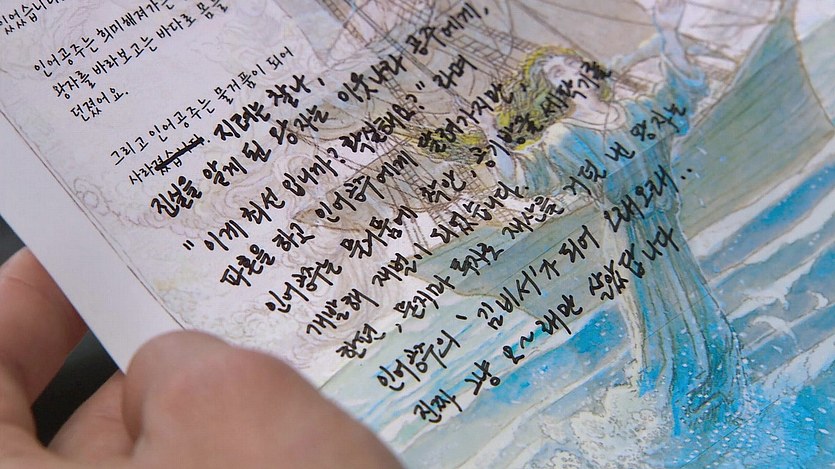 있었습니
인어공주는 희미해져가는
왕자를 바라보고는 바다로 몸을
던졌어요.
그리고 인어공주는 물거품이 되어
사라졌습니다. 지려는 찰나,
진실을 알게 된 왕자는 이웃나라 공주에게,
"이게 최선 입니까? 확실해요?" 라며
파혼을 하고 인어공주에게 달려가지만,
인어공주는 물거품에 착안, 공기방울 세탁기를
개발해 재벌이 되었습니다.
한편, 문리다 투자로 재산을 거덜 낸 왕자는
인어공주의 '김비서'가 되어 오래오래..
진짜 그냥 오~래만 살았답니다